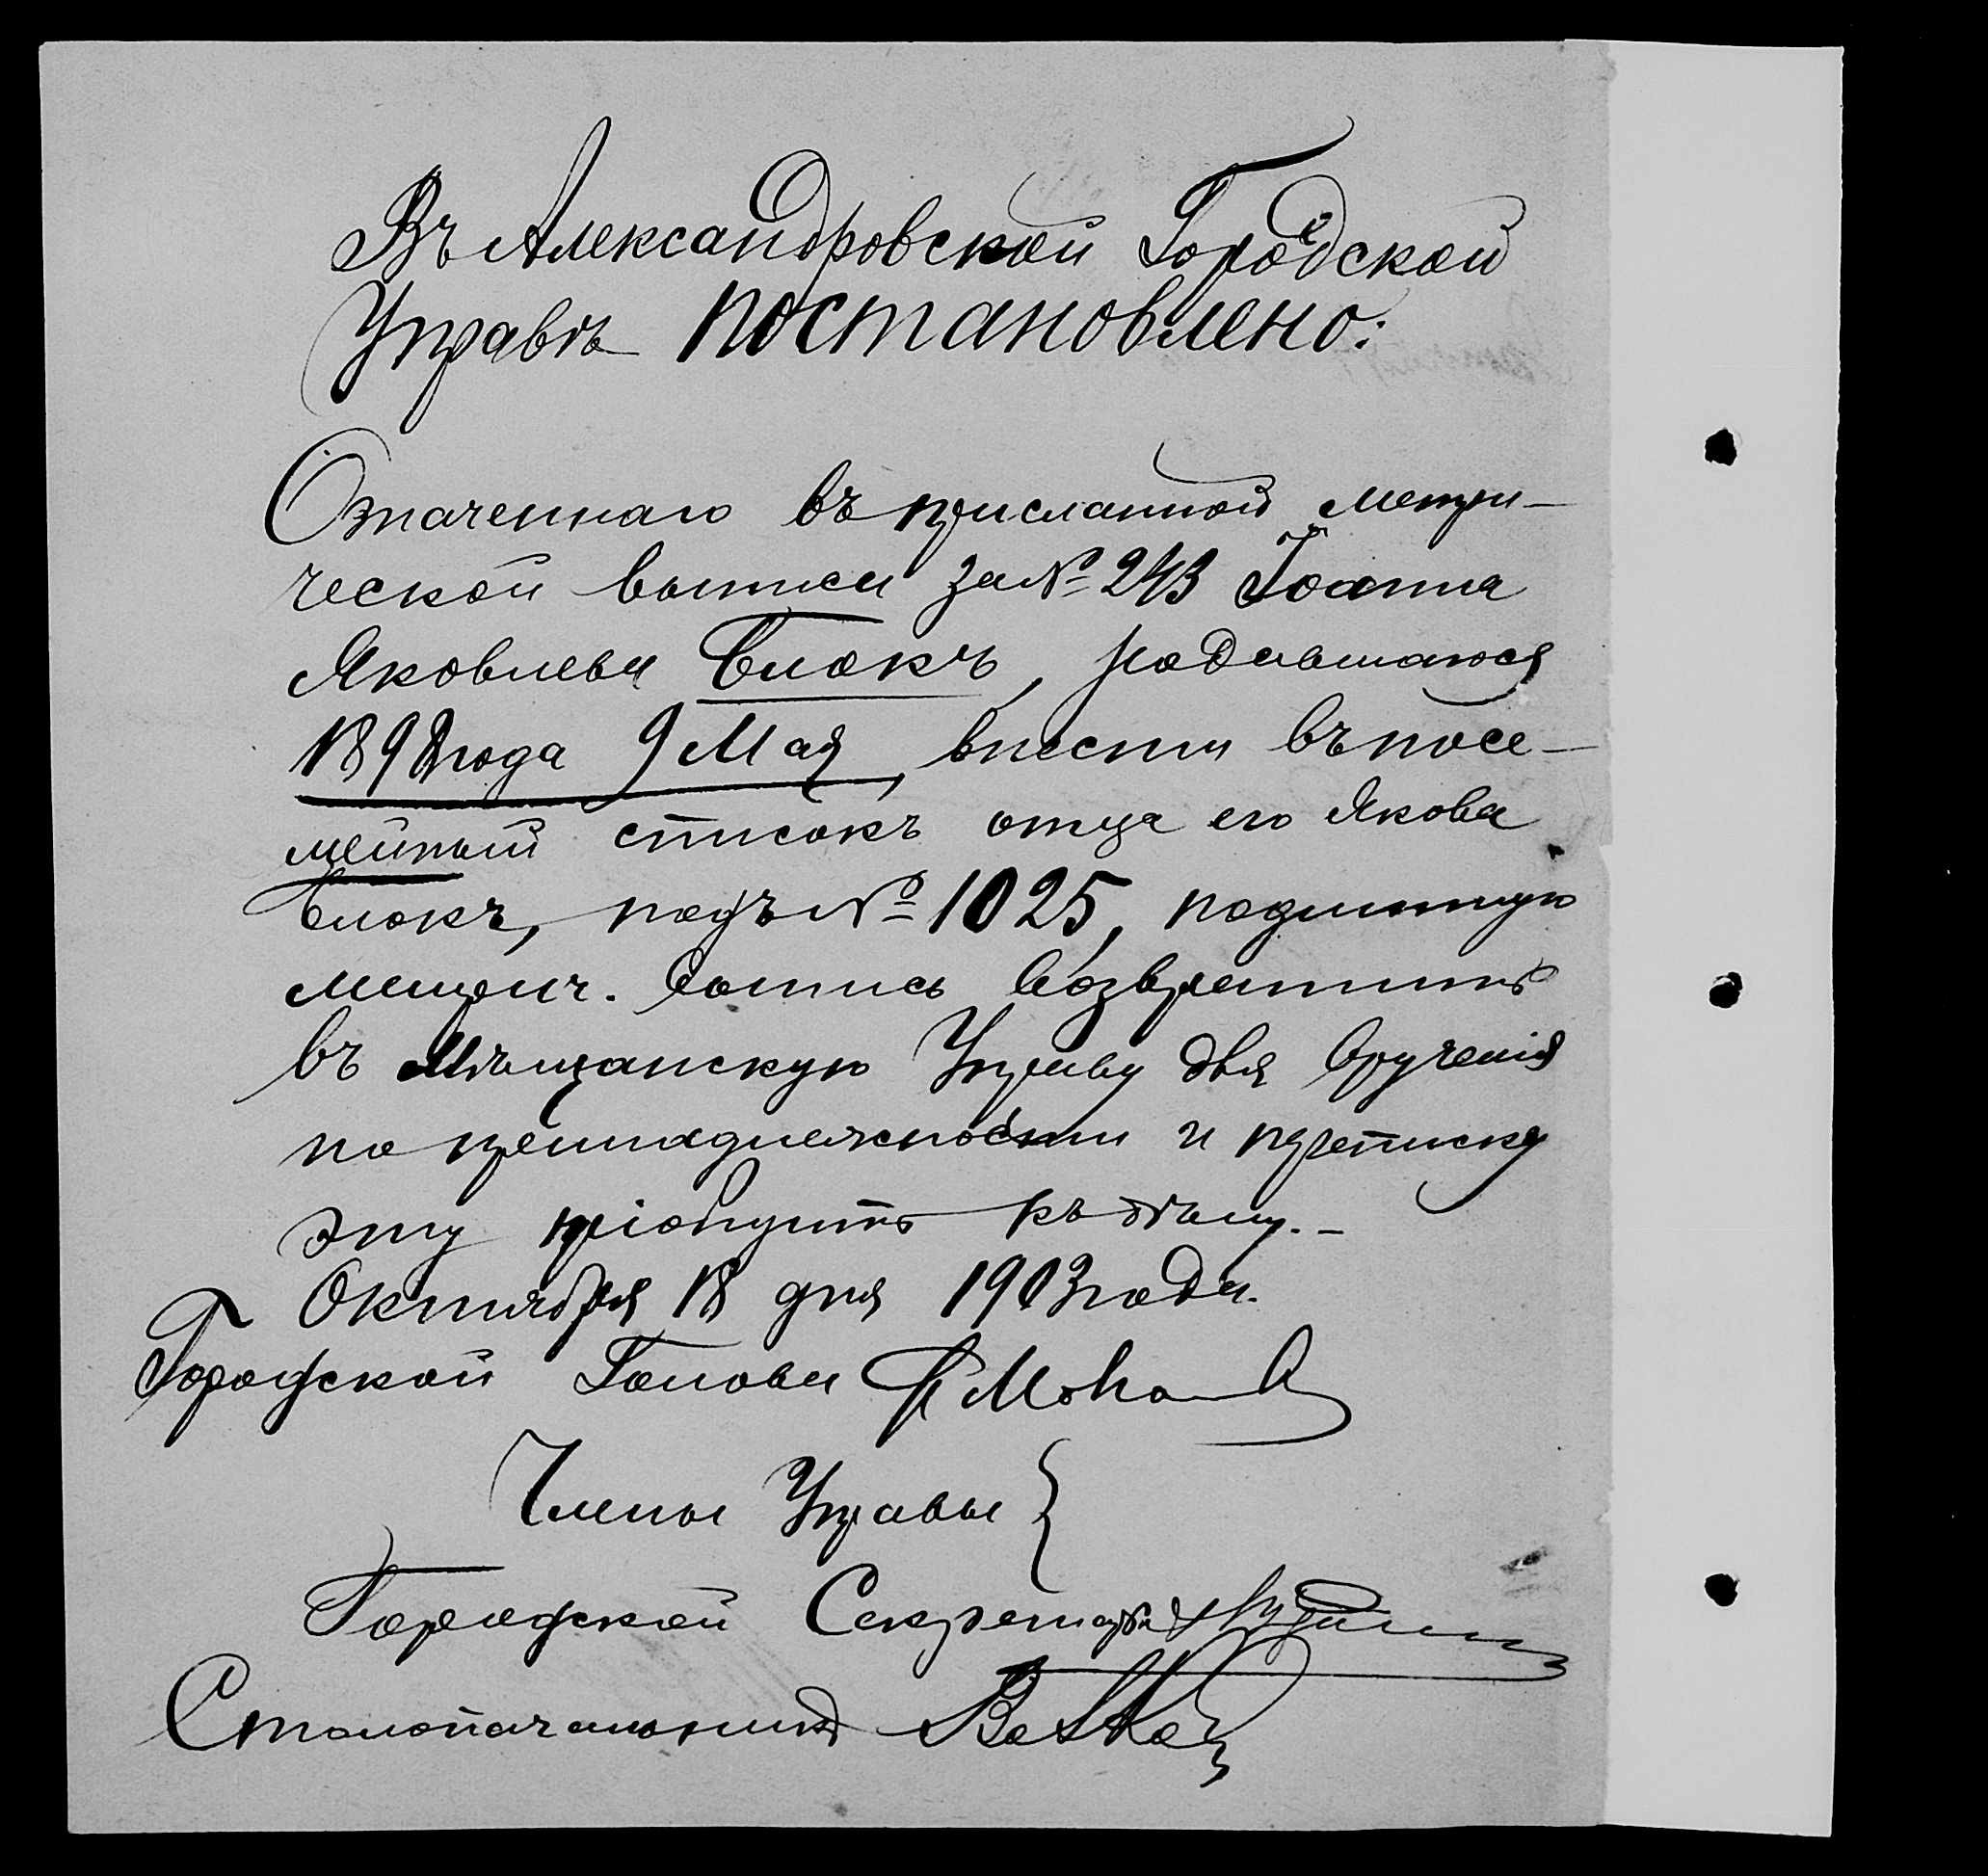 Въ Александровской Городской
Управѣ постановлено:
Означеннаго въ присланной метри-
ческой выписи за № 243 Іоанна
Яковлева Блокъ, родившагося
1892 года 9 Мая, внести въ посе-
мейный списокъ отца его Якова
Блокъ, подъ № 1025, подлинную
метрич. выпись возвратить
въ Мѣщанскую Управу для врученія
по принадлежности и переписку
эту пріобщить къ дѣлу.-
Октября 18 дня 1903 года.
Городской Голова
Члены Управы {
Городской Секретарь
Столоначальникъ